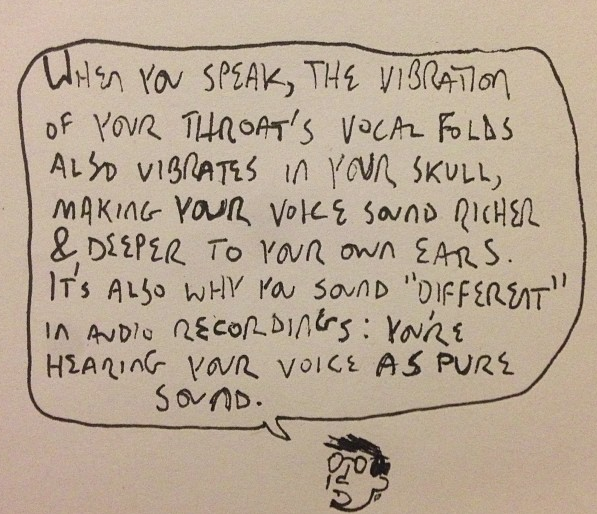 WHEN YOU SPEAK, THE VIBRATION
OF YOUR THROAT'S VOCAL FOLDS
ALSO VIBRATES IN YOUR SKULL,
MAKING YOUR VOICE SOUND RICHER
& DEEPER TO YOUR OWN EARS.
IT'S ALSO WHY YOU SOUND "DIFFERENT"
IN AUDIO RECORDINGS: YOU'RE
HEARING YOUR VOICE AS PURE
SOUND.